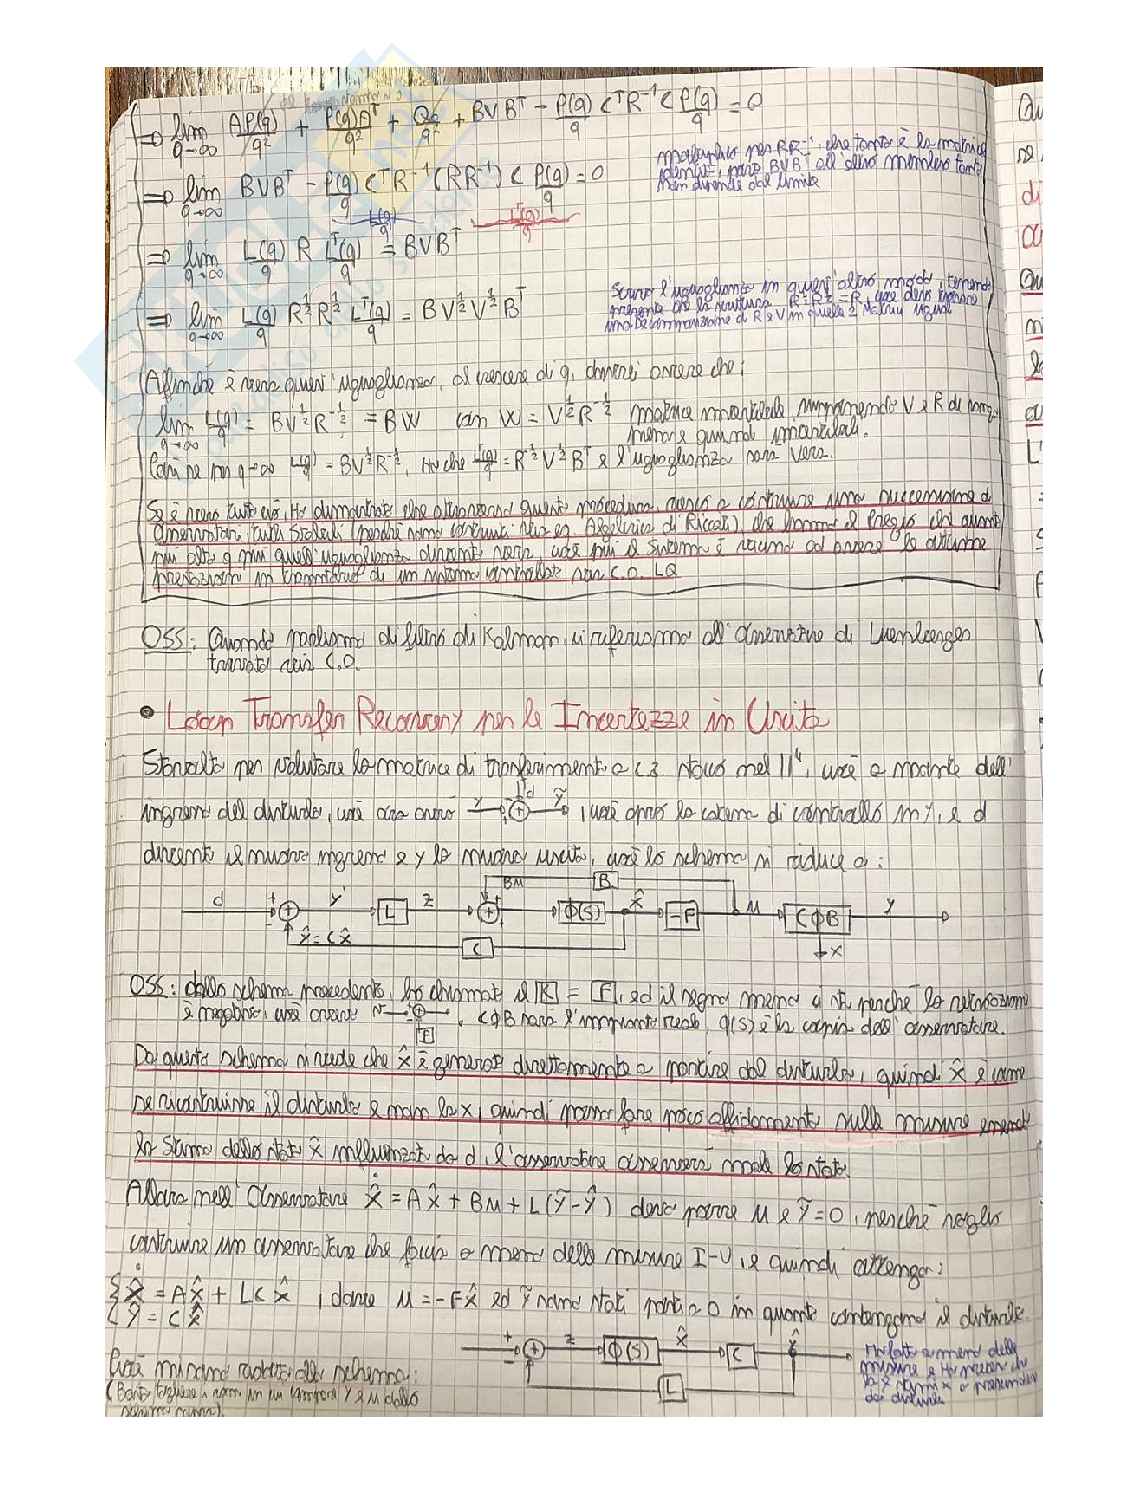 => lim q→∞ AP(q)/q² + P(q)Aᵀ/q² + Q₀/q² + BVBᵀ - P(q)/q CᵀR⁻¹C P(q)/q = 0
moltiplico per RR⁻¹, che tanto è la matrice
identità, porto BVBᵀ all'altro membro tanto
non dipende dal limite
=> lim q→∞ BVBᵀ - P(q)/q CᵀR⁻¹(RR⁻¹)C P(q)/q = 0
L(q)/q Lᵀ(q)/q
=> lim q→∞ L(q)/q R Lᵀ(q)/q = BVBᵀ
Scrivo l'uguaglianza in quest'altro modo, tenendo
presente che la scrittura
una scomposizione di R e V in quelle 2 matrici uguali
=> lim q→∞ L(q)/q R^½ R^½ Lᵀ(q)/q = BV^½ V^½ Bᵀ
Affinché è vera quest'uguaglianza, al crescere di q, dovrei avere che:
lim q→∞ L(q)/q = BV^½ R^-½ = BW con W = V^½ R^-½ matrice invertibile supponendo V e R di rango
pieno e quindi invertibili.
Così se per q→∞ L(q)/q = BV^½R^-½, Ho che Lᵀ(q)/q = R^-½ V^½ Bᵀ e l'uguaglianza sarà vera.
Se è vero tutto ciò, Ho dimostrato che attraverso questa procedura riesco a costruire una successione di
osservatori, tutti Stabili (perché sono costruiti Eq. Algebrica di Riccati), che hanno il pregio che quanto
più alto q più quell'uguaglianza diventa vera, cioè più il sistema è vicino ad avere le ottime
prestazioni in di un sistema controllato con C.O. LQ
OSS: Quando parliamo di filtro di Kalman, ci riferiamo all'osservatore di Luenberger
trovato via C.O.
• Loop Transfer Recovery per le Incertezze in Uscita
Stavolta per valutare la matrice di trasferimento a c3 Nous nel 11⁴, cioè a monte dell'
ingresso del disturbo, cioè ora avrò y + d ỹ, cioè apro la catena di controllo in ỹ, e d
diventa il nuovo ingresso e y la nuova uscita, così lo schema si riduce a:
Bu B
d + - y' L z + Φ(s) x̂ -F u CΦB y
ŷ=Cx̂ C x
OSS: dallo schema precedente, ho chiamato il K = F, ed il segno meno c'è perché la retroazione
è negativa, cioè avente N + F, CΦB sarà l'impianto reale, φ(s) è la copia dell'osservatore.
Da questo schema si vede che x̂ è generato direttamente a partire dal disturbo, quindi x̂ è come
se ricostruisse il disturbo e non la x, quindi posso fare poco affidamento sulle misure essendo
la stima dello stato x̂ influenzata da d, l'osservatore osserverà male lo stato.
Allora nell'osservatore x̂̇ = Ax̂ + Bu + L(ỹ-ŷ) devo porre u e ỹ = 0, perché voglio
costruire un osservatore che faccia a meno delle misure I-U, e quindi ottengo:
{ x̂̇ = Ax̂ + LCx̂
ŷ = Cx̂ , dove u = -Fx̂ ed ỹ sono stati posti a 0 in quanto contengono il disturbo.
+ - z Φ(s) x̂ C ŷ
L
Così mi sono ridotto allo schema:
(Basta togliere i rami in cui compare Y e u dallo
schema sopra).
Ho fatto a meno delle
misure e
dei disturbi